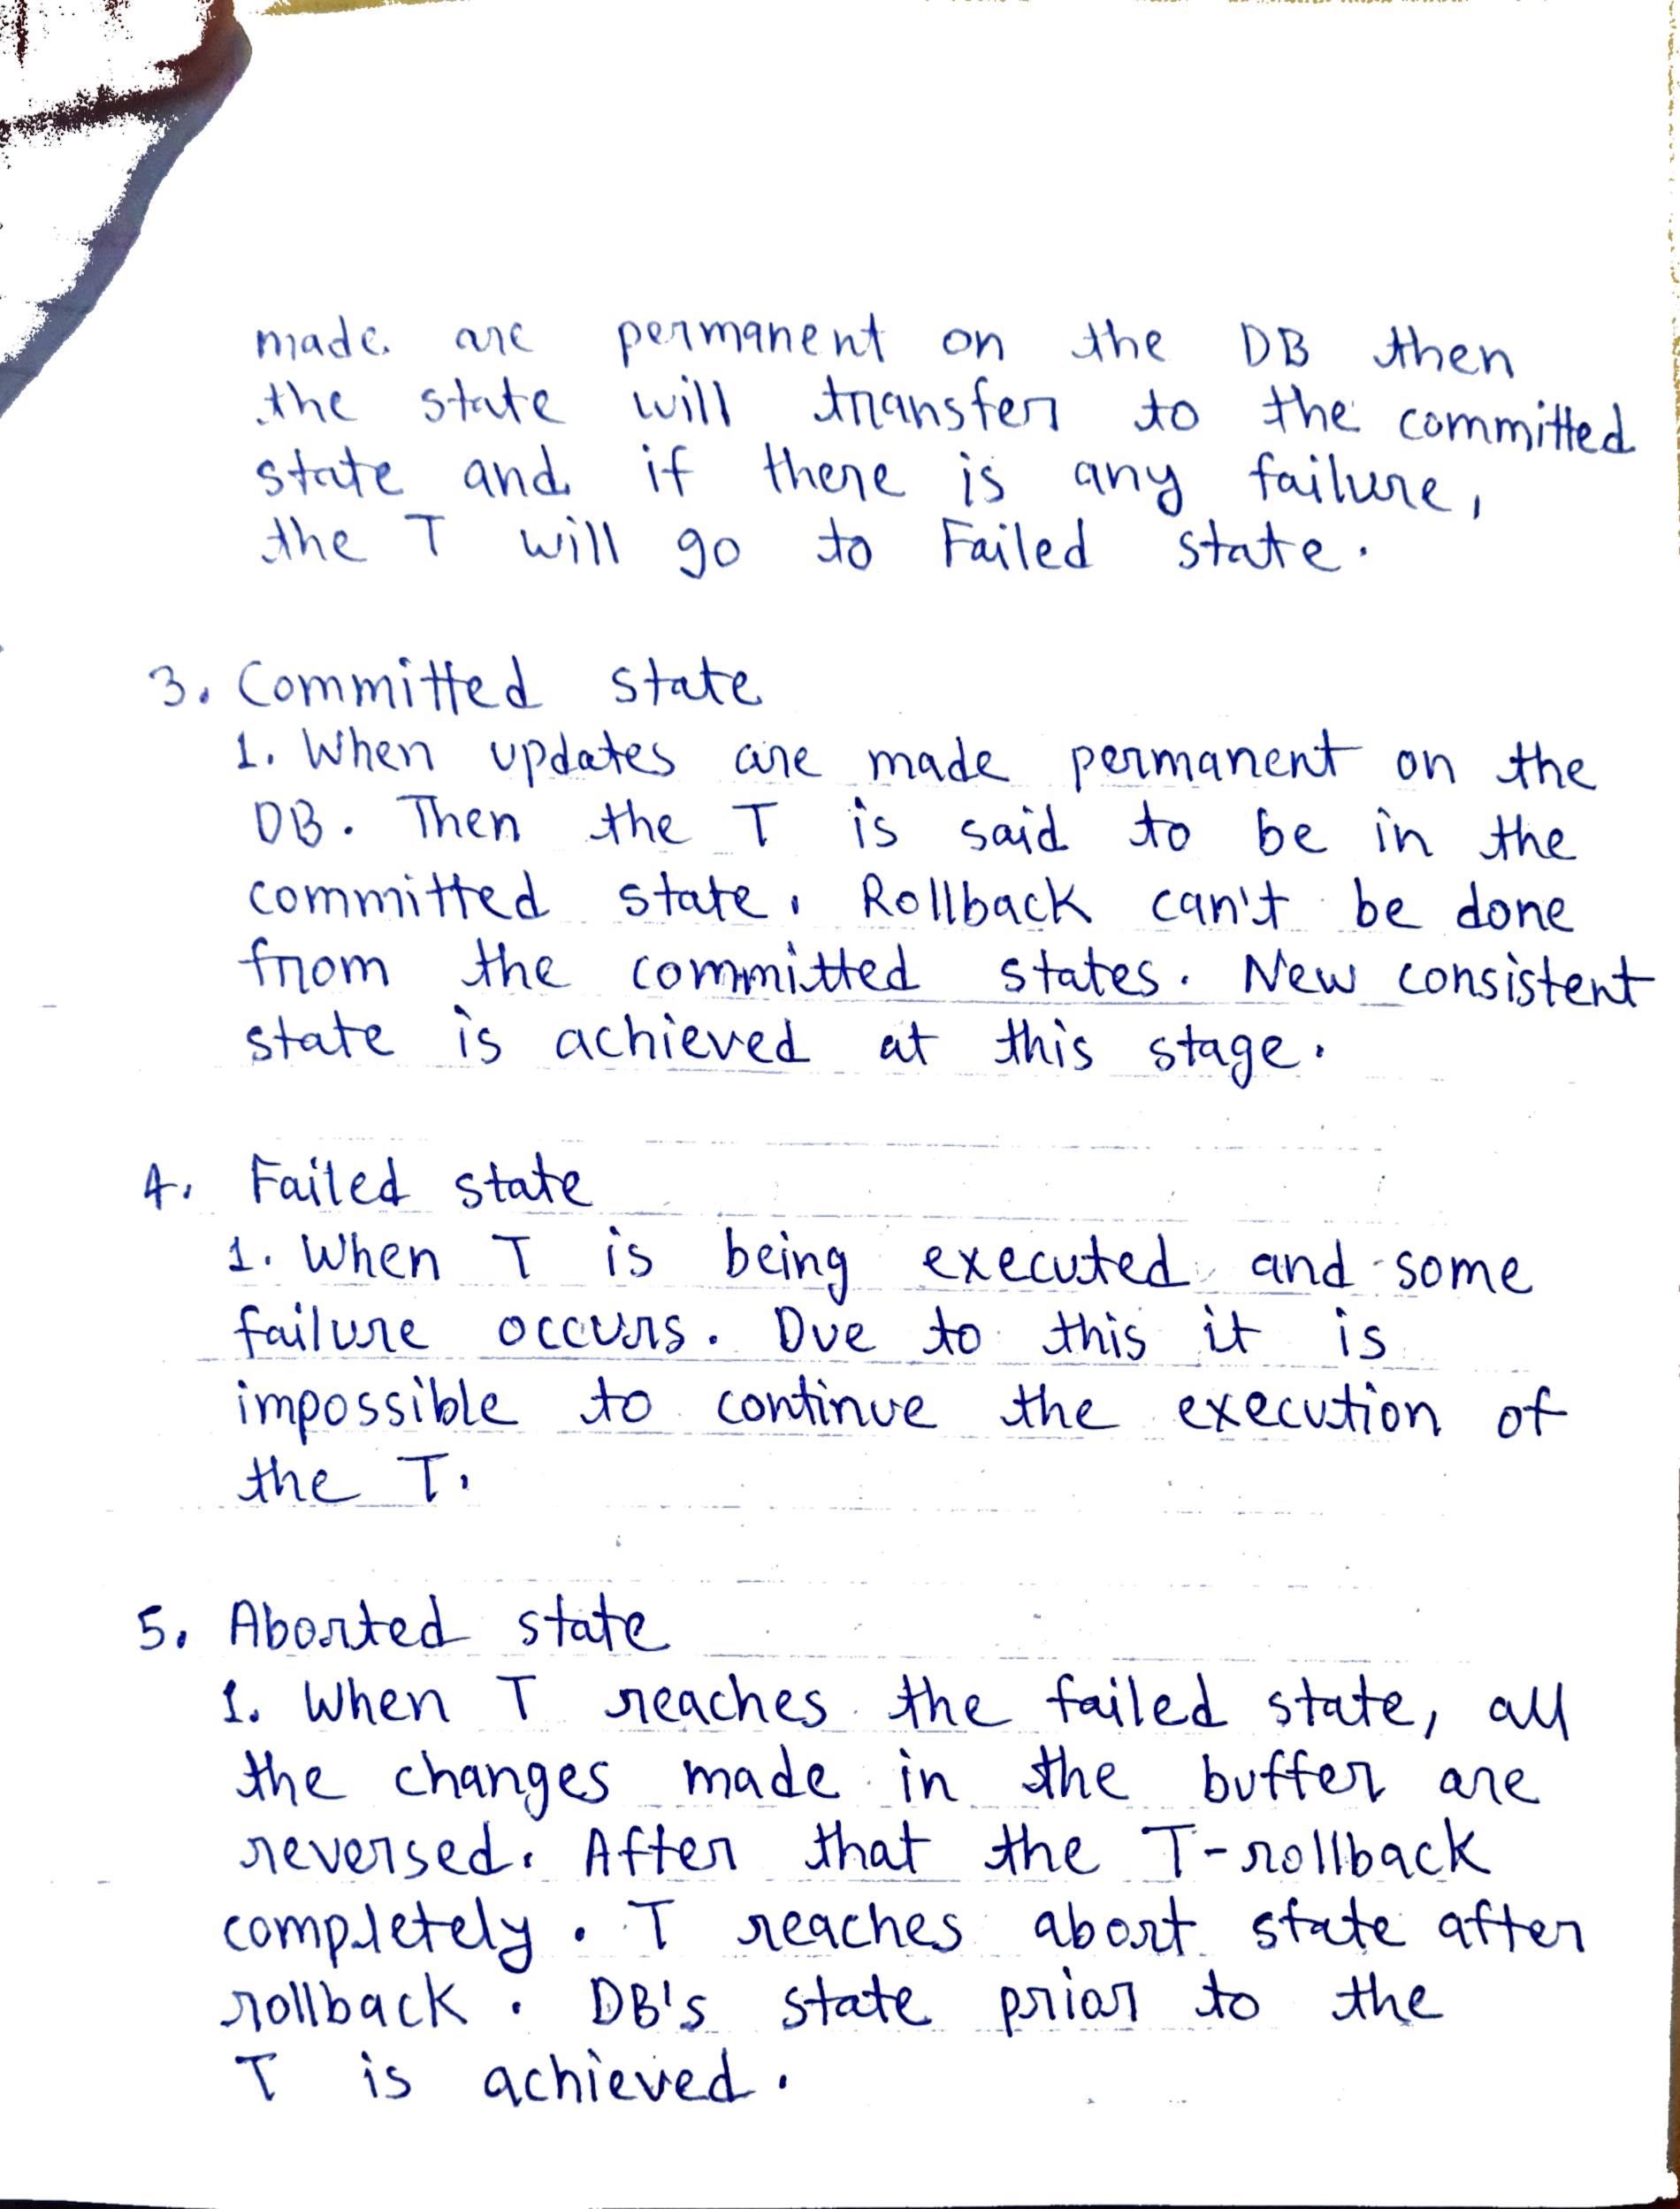 made are permanent on the DB then
the state will transfer to the committed
state and if there is any failure,
the T will go to Failed state.
3. Committed state
1. When updates are made permanent on the
DB. Then the T is said to be in the
committed state. Rollback can't be done
from the committed states. New consistent
state is achieved at this stage.
4. Failed state
1. When T is being executed and some
failure occurs. Due to this it is
impossible to continue the execution of
the T.
5. Aborted state
1. When T reaches the failed state, all
the changes made in the buffer are
reversed. After that the T-rollback
completely. T reaches abort state after
rollback. DB's state prior to the
T is achieved.